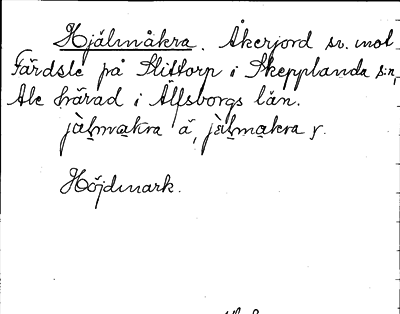 Hjälmåkra. Åkerjord sv. mot
Färdsle på Slittorp i Skepplanda s:n,
Ale härad i Älfsborgs län.
jälmakra ä, jälmakra y.
Höjdmark.